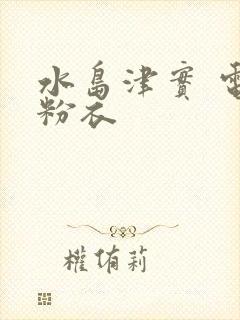 水島津實 電
粉衣
權侑莉